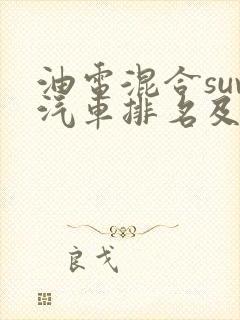 油電混合suv
汽車排名及
良戈